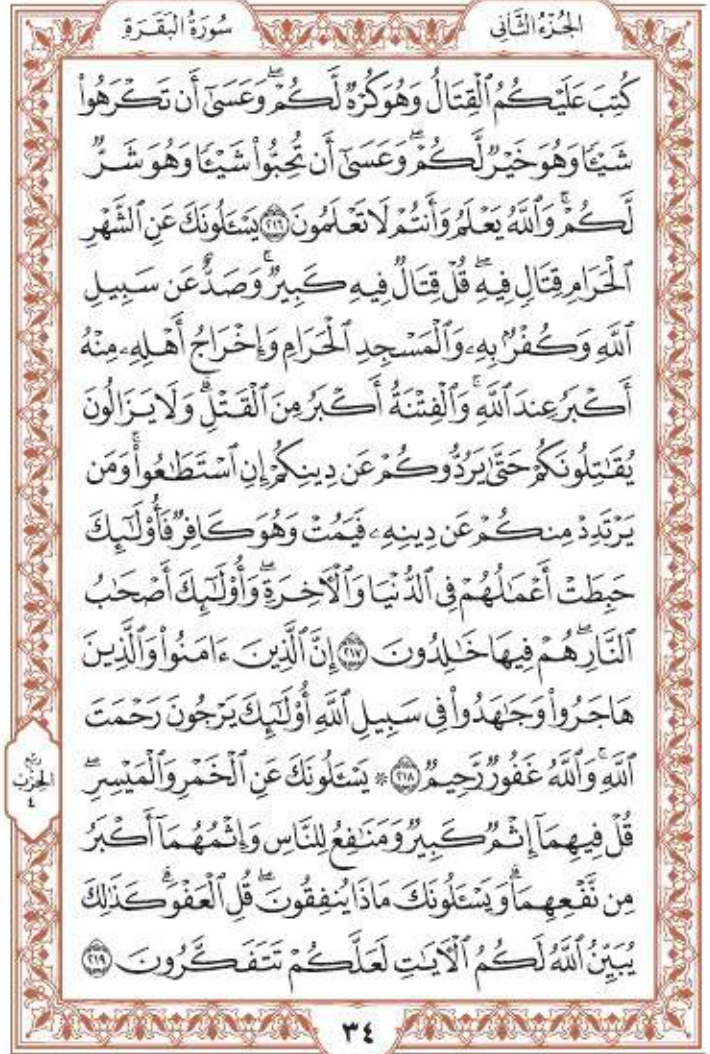 سُورَةُ الْبَقَرَةِ
الجُزْءُ الثَّانِي
كُتِبَ عَلَيْكُمُ ٱلْقِتَالُ وَهُوَ كُرْهٌ لَّكُمْ ۖ وَعَسَىٰٓ أَن تَكْرَهُوا۟
شَيْـًٔا وَهُوَ خَيْرٌ لَّكُمْ ۖ وَعَسَىٰٓ أَن تُحِبُّوا۟ شَيْـًٔا وَهُوَ شَرٌّ
لَّكُمْ ۗ وَٱللَّهُ يَعْلَمُ وَأَنتُمْ لَا تَعْلَمُونَ ٢١٦ يَسْـَٔلُونَكَ عَنِ ٱلشَّهْرِ
ٱلْحَرَامِ قِتَالٍ فِيهِ ۖ قُلْ قِتَالٌ فِيهِ كَبِيرٌ ۖ وَصَدٌّ عَن سَبِيلِ
ٱللَّهِ وَكُفْرٌۢ بِهِۦ وَٱلْمَسْجِدِ ٱلْحَرَامِ وَإِخْرَاجُ أَهْلِهِۦ مِنْهُ
أَكْبَرُ عِندَ ٱللَّهِ ۚ وَٱلْفِتْنَةُ أَكْبَرُ مِنَ ٱلْقَتْلِ ۗ وَلَا يَزَالُونَ
يُقَـٰتِلُونَكُمْ حَتَّىٰ يَرُدُّوكُمْ عَن دِينِكُمْ إِنِ ٱسْتَطَـٰعُوا۟ ۚ وَمَن
يَرْتَدِدْ مِنكُمْ عَن دِينِهِۦ فَيَمُتْ وَهُوَ كَافِرٌ فَأُو۟لَـٰٓئِكَ
حَبِطَتْ أَعْمَـٰلُهُمْ فِى ٱلدُّنْيَا وَٱلْـَٔاخِرَةِ ۖ وَأُو۟لَـٰٓئِكَ أَصْحَـٰبُ
ٱلنَّارِ ۖ هُمْ فِيهَا خَـٰلِدُونَ ٢١٧ إِنَّ ٱلَّذِينَ ءَامَنُوا۟ وَٱلَّذِينَ
هَاجَرُوا۟ وَجَـٰهَدُوا۟ فِى سَبِيلِ ٱللَّهِ أُو۟لَـٰٓئِكَ يَرْجُونَ رَحْمَتَ
ٱللَّهِ ۚ وَٱللَّهُ غَفُورٌ رَّحِيمٌ ٢١٨ ۞ يَسْـَٔلُونَكَ عَنِ ٱلْخَمْرِ وَٱلْمَيْسِرِ ۖ
قُلْ فِيهِمَآ إِثْمٌ كَبِيرٌ وَمَنَـٰفِعُ لِلنَّاسِ وَإِثْمُهُمَآ أَكْبَرُ
مِن نَّفْعِهِمَا ۗ وَيَسْـَٔلُونَكَ مَاذَا يُنفِقُونَ ۖ قُلِ ٱلْعَفْوَ ۗ كَذَٰلِكَ
يُبَيِّنُ ٱللَّهُ لَكُمُ ٱلْـَٔايَـٰتِ لَعَلَّكُمْ تَتَفَكَّرُونَ ٢١٩
ربع
الحزب
٤
٣٤